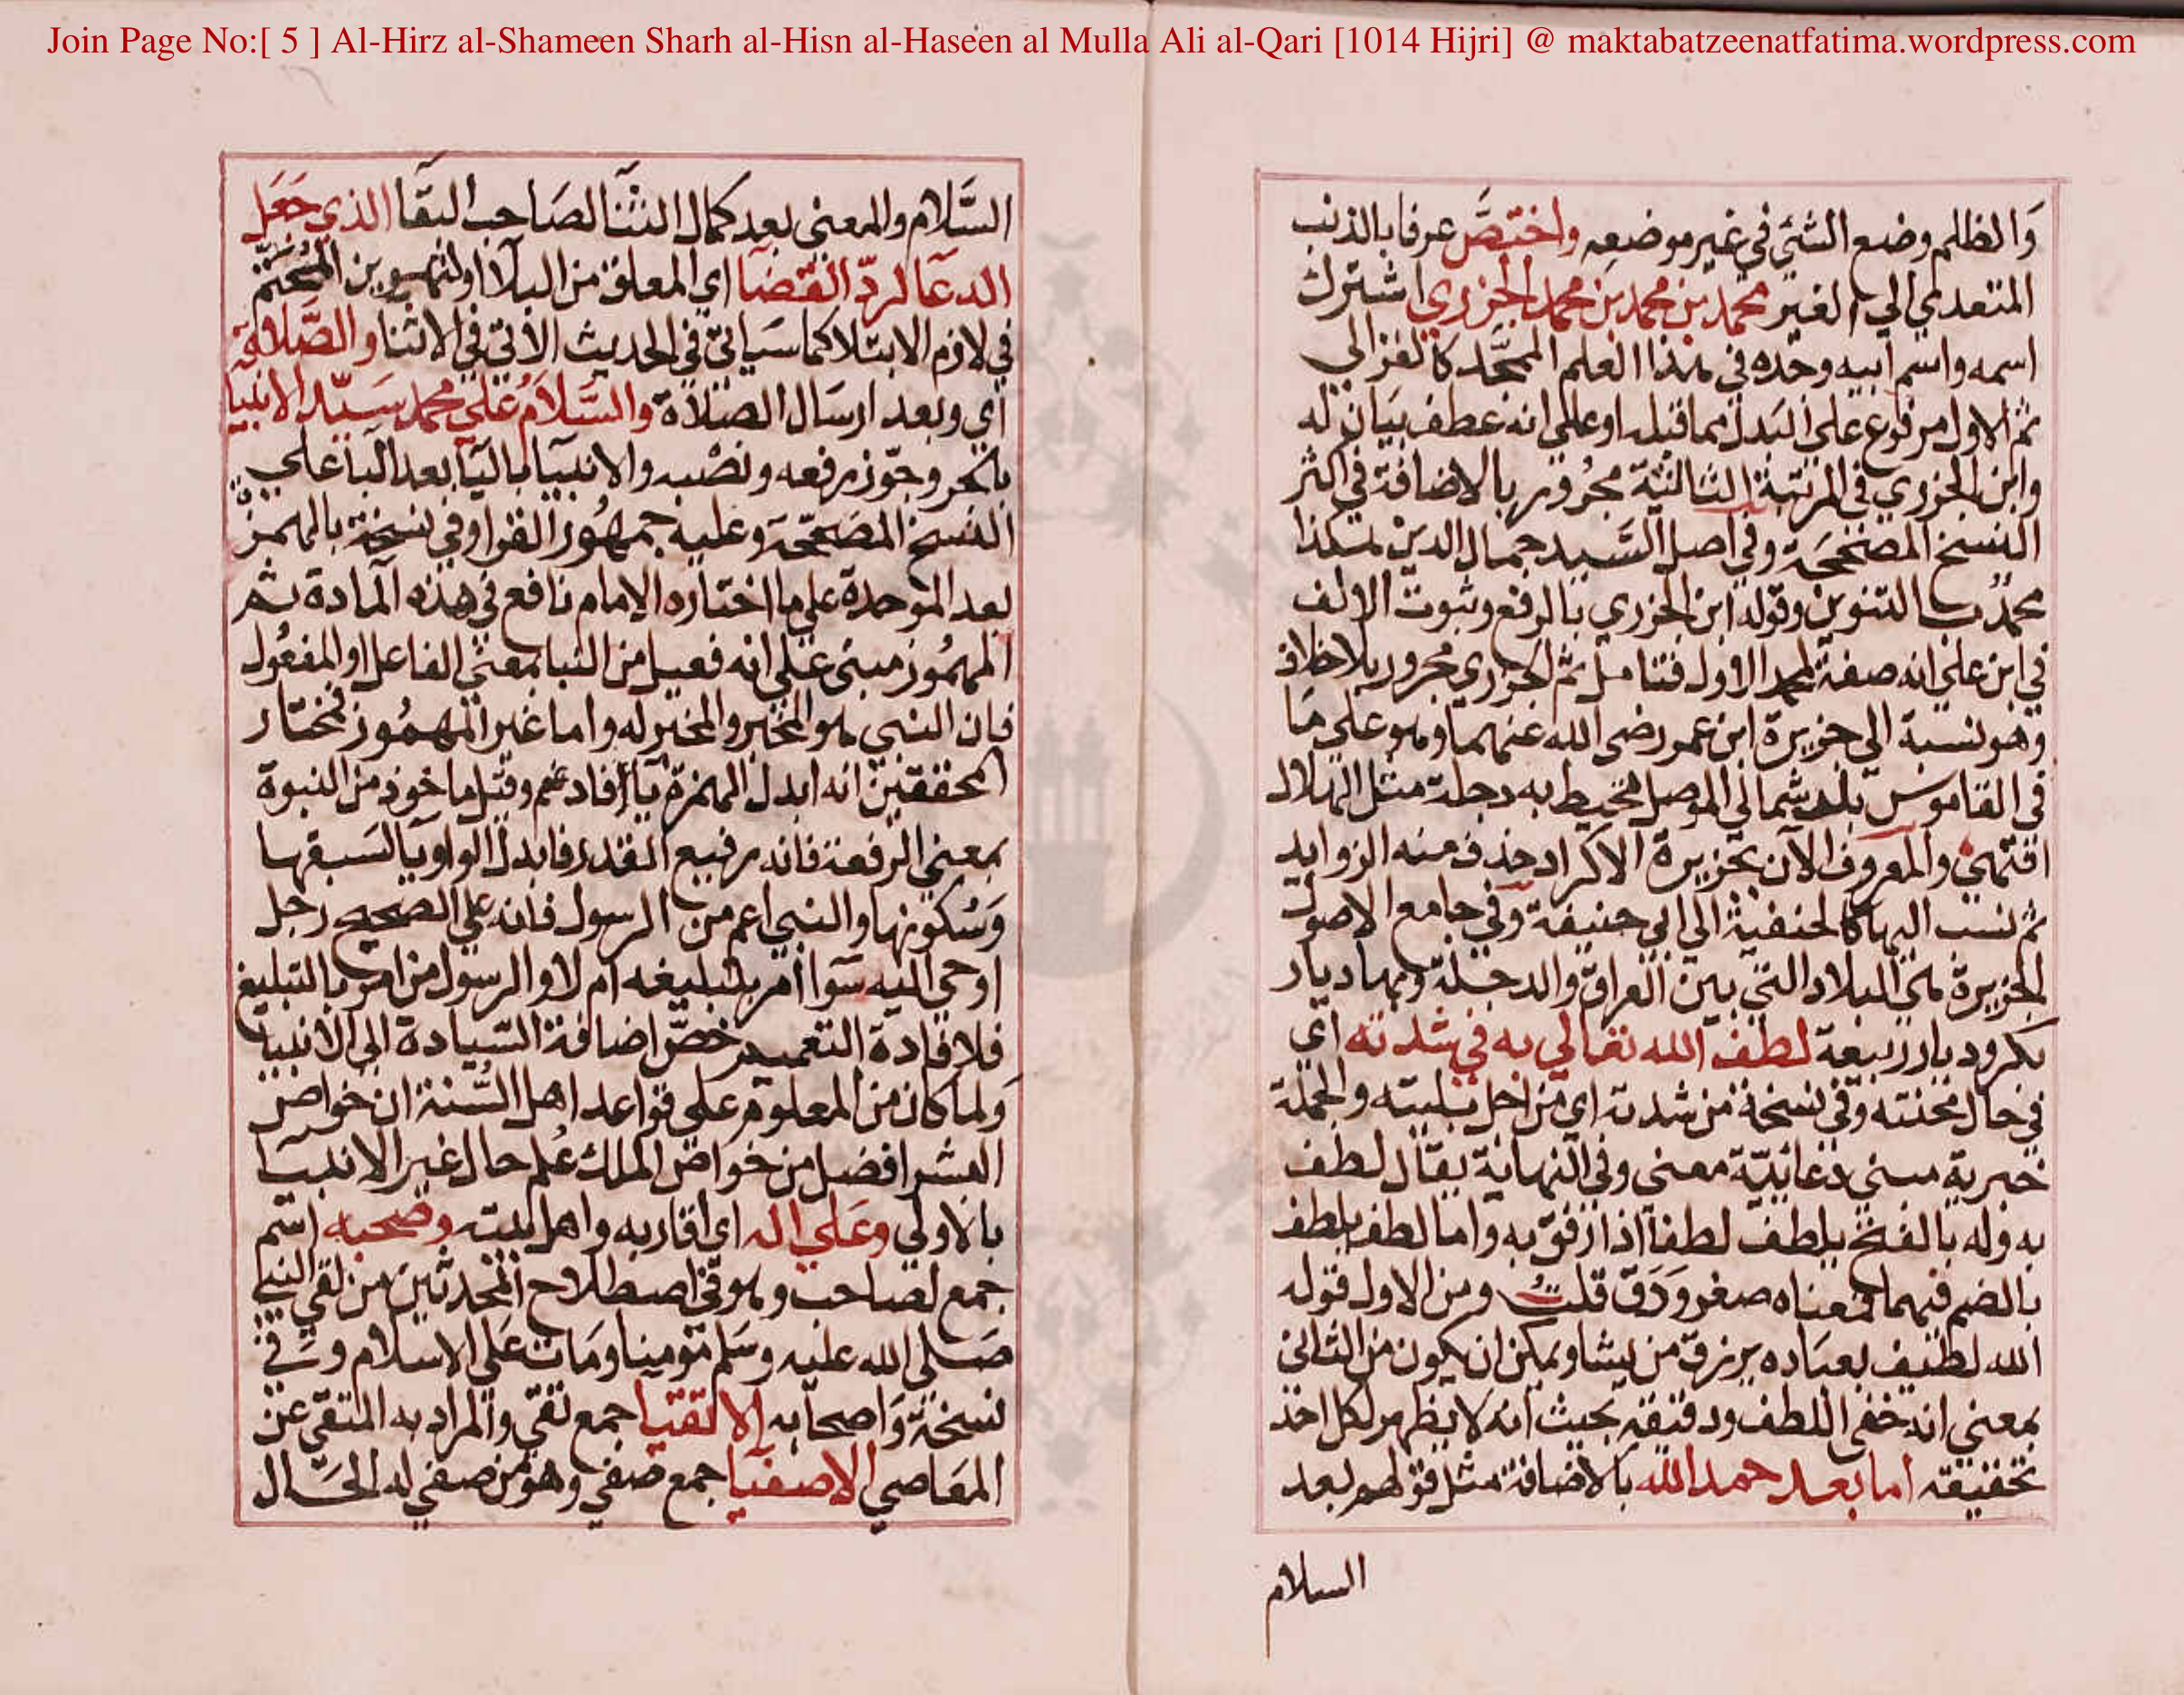 Join Page No:[ 5 ] Al-Hirz al-Shameen Sharh al-Hisn al-Haseen al Mulla Ali al-Qari [1014 Hijri] @ maktabatzeenatfatima.wordpress.com
وَالظلم وضع الشئي في غير موضعه واختصَّ عرفا بالذنب
المتعدي الي الغير محمد بن محمد بن محمد الجزري اشترك
اسمه واسم ابيه وجده في هذا العلم الممجَّد كالغزالي
ثم الاول مرفوع على البَدل مما قبله او علي انه عطف بيَان له
وابن الجزري في المرتبة الثالثة مجُرور بالاضافة في اكثر
النسخ المصَححَة وفي اصل السَّيد جمال الدين هكذا
محمدُ بالتنوين وقوله ابن الجزري بالرفع وثبوت الالف
في ابن علي انه صفة لمحمد الاول فتامل ثم الجزري مجرور بلاخلاف
وهو نسبة الي جزيرة ابن عمر رضى الله عنهما وهو علي مَا
في القاموس بلد شمالي الموصل تحيط به دجلة مثل الهلال
انتهي والمعروف الآن بجزيرة الاكراد حذف منه الزوايد
ثم نسب اليها كالحنفية الي ابي حنيفة وفي جامع الاصول
الجزيرة هي البلاد التي بين العراق والدجلة وبها ديار
بكر وديار ربيعة لطف الله تعالي به في شدته اي
في حال محنته وفي نسخة من شدته اي من اجل بليته والجملة
خبرية مبني دعائيّة معنى وفي النهاية يقال لطف
به وله بالفتح يلطف لطفا اذا رفق به واما لطف يلطف
بالضم فيهما فمعناه صغر وَدَق قلت ومن الاول قوله
الله لطيف بعباده يرزق من يشا ويمكن ان يكون من الثاني
بمعني انه خفي اللطف ودقيقه بحيث انه لا يظهر لكل احد
تحقيقه اما بعد حمد الله بالاضافة مثل قولهم بعد
السلام
السَّلام والمعنى بعد كمال الثنا لصَاحب البقا الذي جَعَل
الدعَا لردّ القضَا اي المعلق من البلا او لتهوين المُحتّم
في لازم الابتلا كما سَياتي في الحديث الآتي في الاثنا والصَّلاة
اي وبعد ارسَال الصَلاة والسَّلامُ علي محمد سَيّد الانبيا
بالجر وجوّز رفعه ونصْبه والانبيَا باليَا بعد البَا علي
النسخ المصَححَّة وعليه جمهُور القرا وفي نسخة بالهمزة
بعد الموحدة علي ما اختاره الامام نافع في هذه المادة ثم
المهمُوز مبنى علي انه فعيل من النبا بمعني الفاعل او المفعُول
فان النبي هو المخبر والمخبر له واما غير المهمُوز فمختار
المحققين انه ابدل الهمزة يا فادغم وقيل ماخوذ من النبوة
بمعني الرفعة فانه رفيع القدر فابدل الواو يا لسَبقها
وَسُكونها والنبي اعم من الرسول فانه علي الصحيح رجل
اوحي اليه سَوا امر بتبليغه ام لا والرسول من امر بالتبليغ
فلافادة التعميم خصَّ اضافة السّيادة الي الانبيا
وَلما كان من المعلوم علي قواعد اهل السُّنة ان خواص
البشر افضل من خواص الملك عُلم حال غير الانبيَا
بالاولي وعَلي اله اي اقاربه واهل بيته وصحبه اسم
جمع لصاحب وهو في اصطلاح المحدثين من لقي النبي
صَلى الله عليه وسَلم مؤمنا ومَات عَلي الاسلام وَفي
نسخة وَاصحابه الاتقيا جمع تقي والمراد به المتقي عن
المعَاصي الاصفيَا جمع صفي وهو من صفي له الحَال